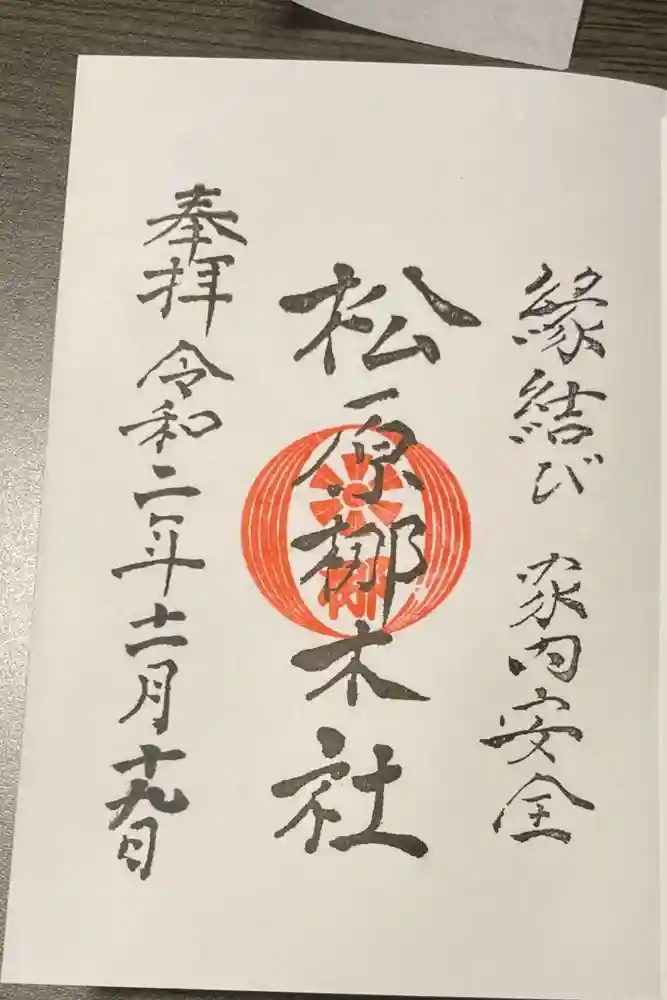 縁結び 家内安全
松原梛木社
奉拝 令和二年十一月十九日